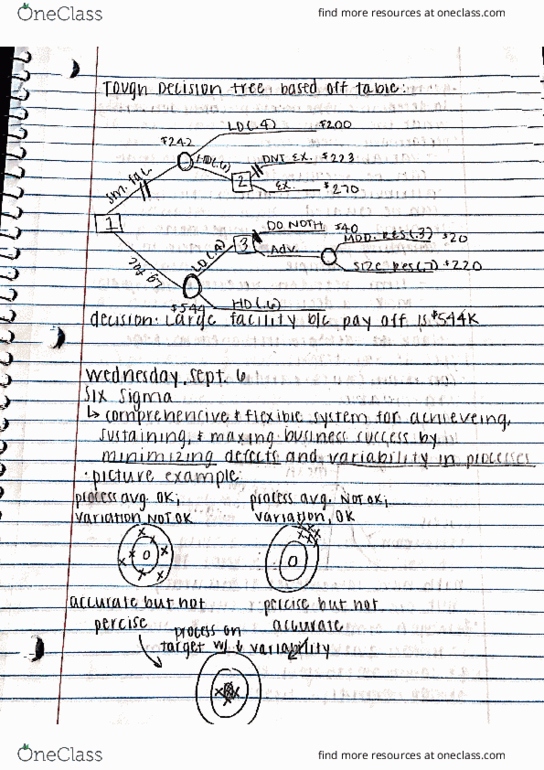 OneClass
find more resources at oneclass.com
Tough Decision tree based off table:
LD(.4) $200
$242
HD(.6)
DNT EX. $223
sm. fac.
2
EX. $270
1
DO NOTH $40
MOD. Res(.3) $20
3
Adv.
LD(.4)
Lg fac
SIZE Res(.7) $220
$544
HD(.6)
decision: Large facility b/c pay off is $544K
Wednesday, Sept. 6
Six Sigma
↳ comprehencive & flexible system for achieveing,
sustaining, & maxing business success by
minimizing defects and variability in processes
· picture example:
process avg. OK; process avg. NOT OK;
variation NOT OK variation, OK
accurate but not percise but not
percise accurate
process on
target w/ ↓ variability
OneClass
find more resources at oneclass.com